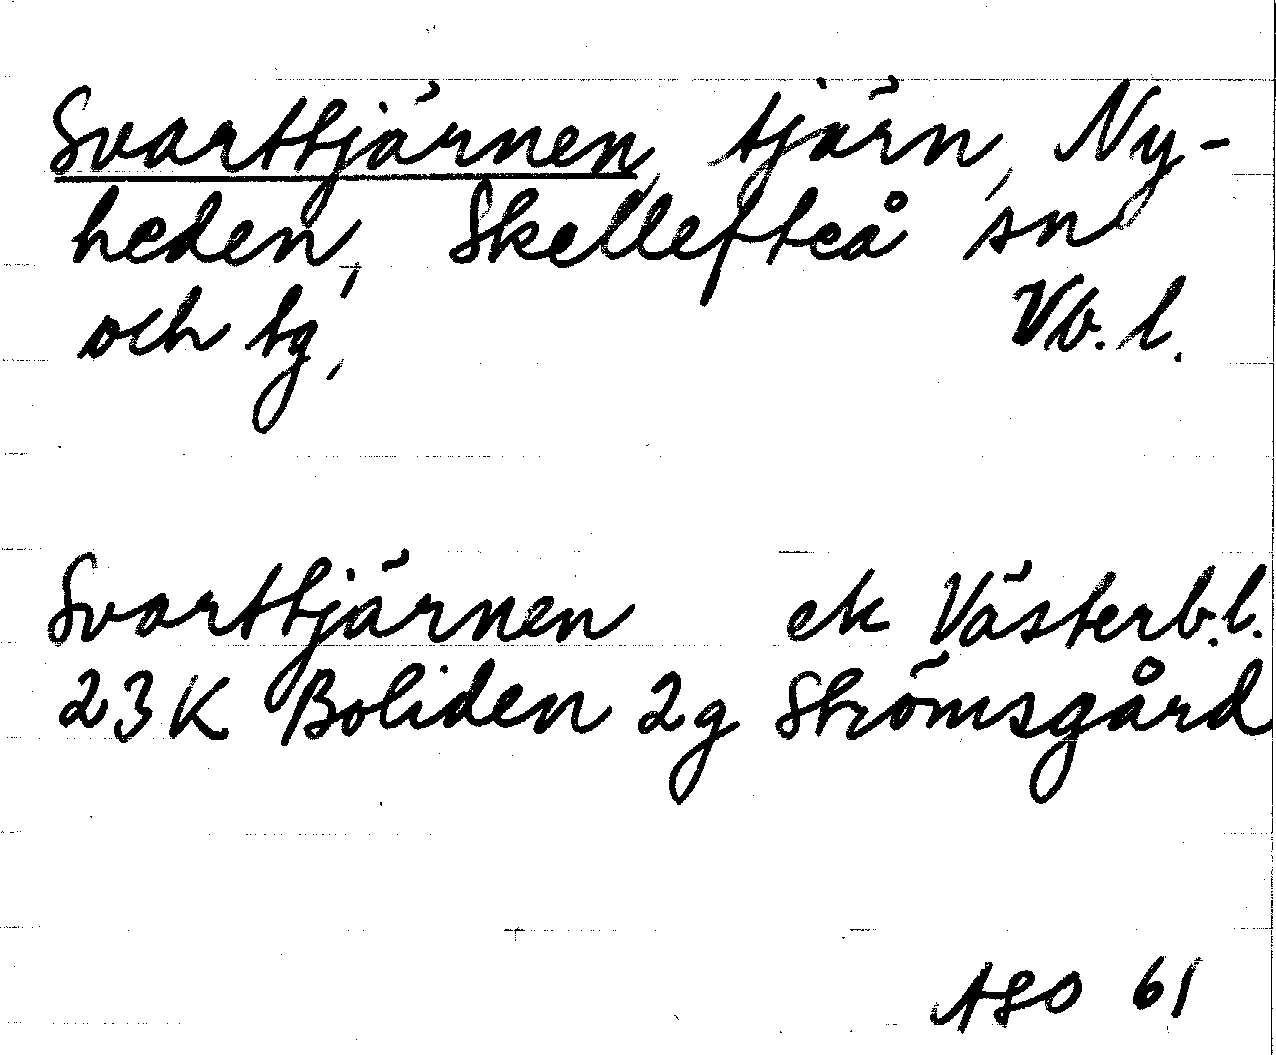 Svarttjärnen, tjärn, Ny-
heden, Skellefteå sn
och tg, Vb. l.
Svarttjärnen ek Västerb.l.
23K Boliden 2g Strömsgård
ASO 61